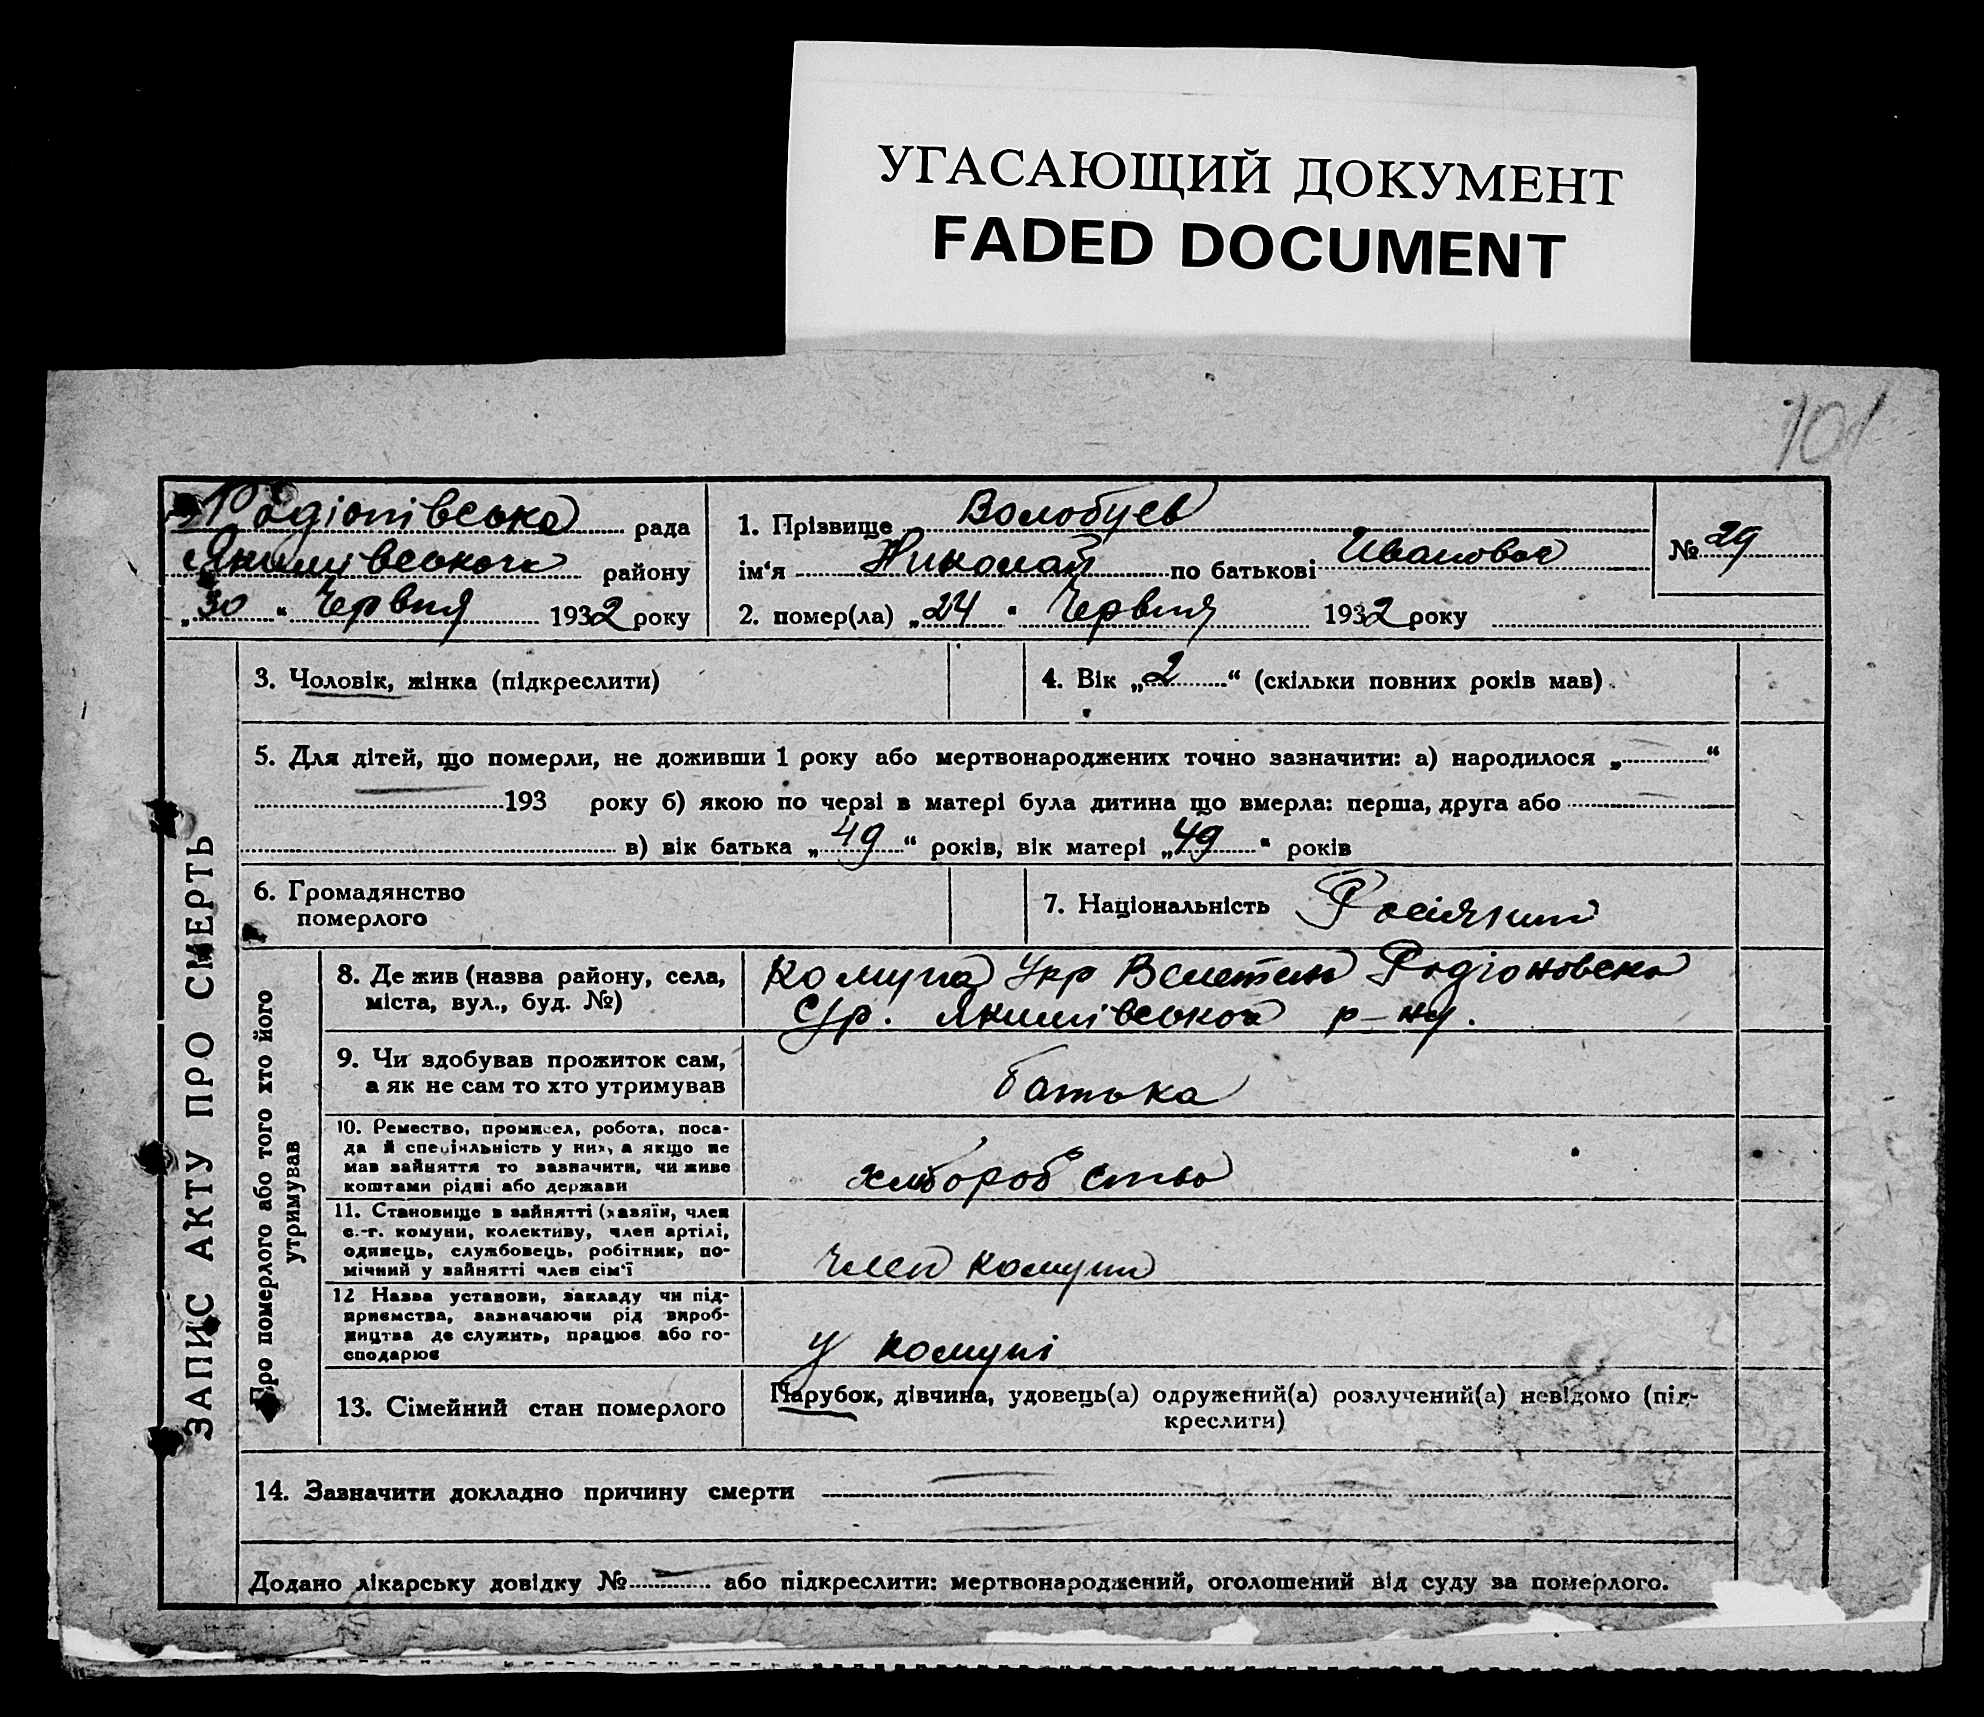 УГАСАЮЩИЙ ДОКУМЕНТ
FADED DOCUMENT
101
Радіонівська рада
Якимівського району
„30“ Червня 1932 року
1. Прізвище Волобуев
ім‘я Николай по батькові Иванович
№ 29
2. помер(ла) „24“ Червня 1932 року
ЗАПИС АКТУ ПРО СМЕРТЬ
3. Чоловік, жінка (підкреслити)
4. Вік „2“ (скільки повних років мав)
5. Для дітей, що померли, не доживши 1 року або мертвонароджених точно зазначити: а) народилося „—“
— 193 року б) якою по черзі в матері була дитина що вмерла: перша, друга або —
в) вік батька „49“ років, вік матері „49“ років
6. Громадянство
померлого
7. Національність Росіянин
Про померлого або того хто його
утримував
8. Де жив (назва району, села,
міста, вул., буд. №)
Комуна Укр Радіоновська
С/р. Якимівського р-ну.
9. Чи здобував прожиток сам,
а як не сам то хто утримував
батька
10. Ремество, промисел, робота, поса-
да й спеціяльність у них, а якщо не
мав зайняття то зазначити, чи живе
коштами рідні або держави
хліборобство
11. Становище в зайнятті (хазяїн, член
с.-г. комуни, колективу, член артілі,
одинець, службовець, робітник, по-
мічний у зайнятті член сім‘ї
член комуни
12 Назва установи, закладу чи під-
приємства, зазначаючи рід вироб-
ництва де служить, працює або го-
сподарює
у комуні
13. Сімейний стан померлого
Парубок, дівчина, удовець(а) одружений(а) розлучений(а) невідомо (під-
креслити)
14. Зазначити докладно причину смерти —
Додано лікарську довідку № — або підкреслити: мертвонароджений, оголошений від суду за померлого.